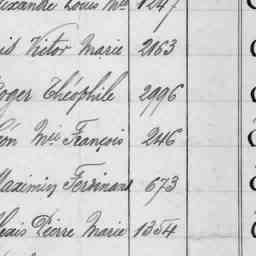 exandre Louis Mie 1247
is Victor Marie 2163
oger Théophile 2996
éon Mce François 246
Maximin Ferdinand 673
lexis Pierre Marie 1354